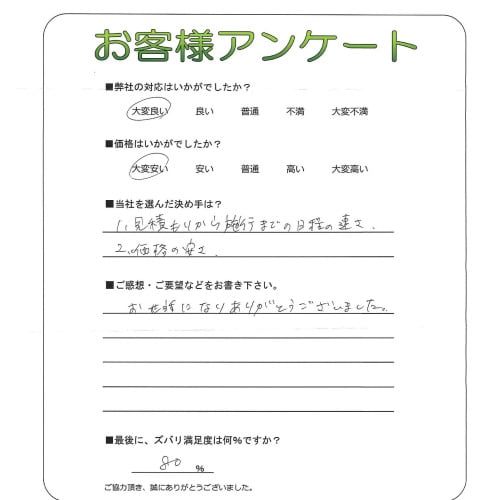 お客様アンケート
■弊社の対応はいかがでしたか？
大変良い 良い 普通 不満 大変不満
■価格はいかがでしたか？
大変安い 安い 普通 高い 大変高い
■当社を選んだ決め手は？
1、見積もりから施行までの日程の速さ.
2、価格の安さ.
■ご感想・ご要望などをお書き下さい。
お世話になりありがとうございました。
■最後に、ズバリ満足度は何％ですか？
80 ％
ご協力頂き、誠にありがとうございました。